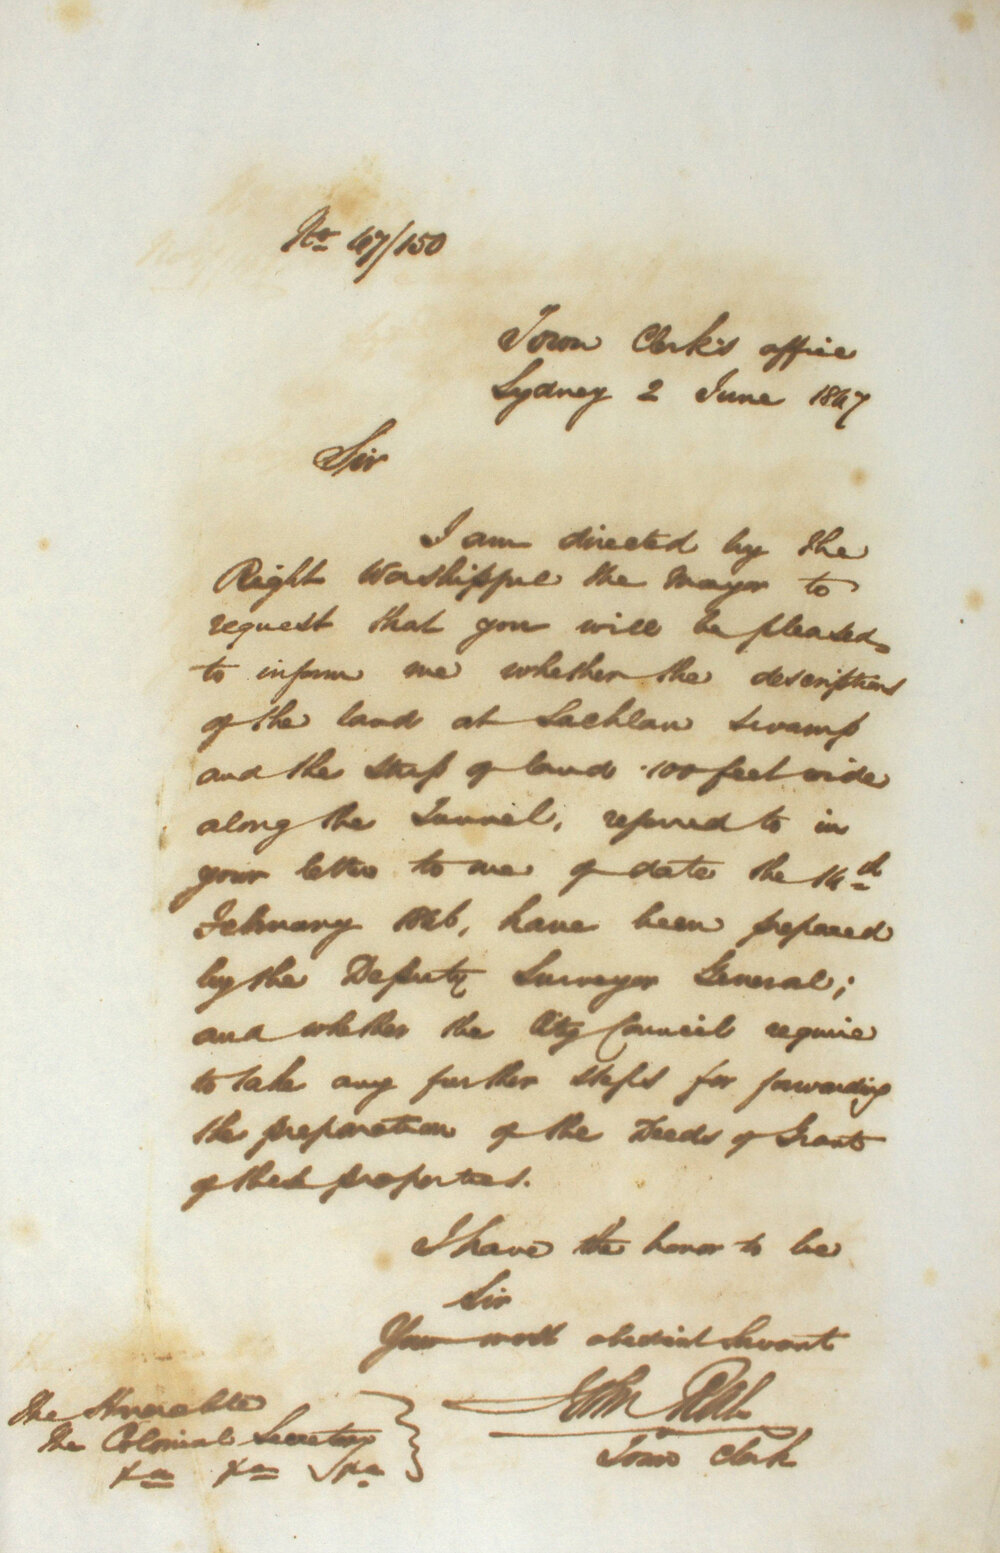 No 47/150
Town Clerk's office
Sydney 2 June 1847
Sir
I am directed by the
Right Worshipful the Mayor to
request that you will be pleased
to inform me whether the descriptions
of the land at Lachlan Swamp
and the Strip of land 100 feet wide
along the Tunnel, referred to in
your letter to me of date the 14th
February 1846, have been prepared
by the Deputy Surveyor General;
and whether the City Council require
to take any further steps for forwarding
the preparation of the Deeds of Grant
of these properties.
I have the honor to be
Sir
Your most obedient Servant
John Rae
Town Clerk
The Honorable
The Colonial Secretary
&c &c &c